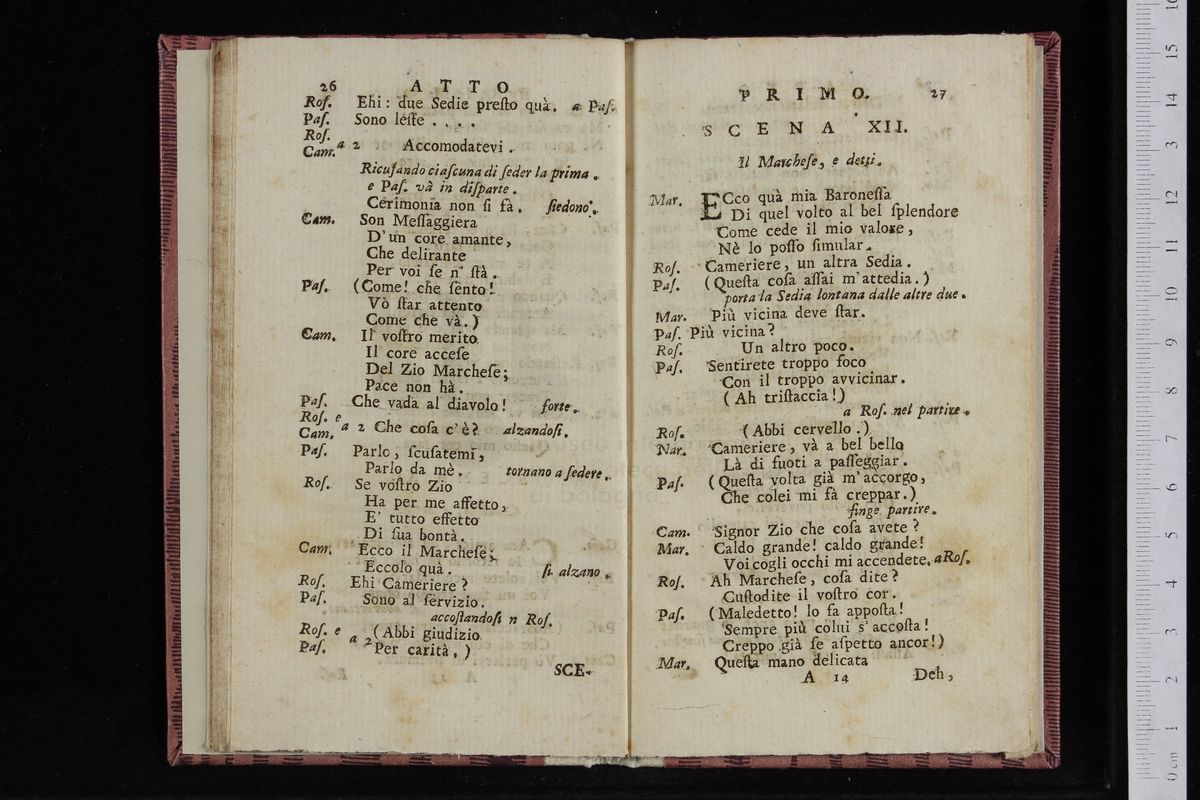 26 ATTO
Ros. Ehi: due Sedie presto quà. a Pas.
Pas. Sono leste . . . .
Ros.
Cam. a 2 Accomodatevi.
Ricusando ciascuna di seder la prima.
e Pas. và in disparte.
Cerimonia non si fà. siedono.
Cam. Son Messaggiera
D'un core amante,
Che delirante
Per voi se n' stà.
Pas. (Come! che sento!
Vò star attento
Come che và.)
Cam. Il vostro merito
Il core accese
Del Zio Marchese;
Pace non hà.
Pas. Che vada al diavolo! forte.
Ros. e
Cam. a 2 Che cosa c'è? alzandosi.
Pas. Parlo, scusatemi,
Parlo da mè. tornano a sedere.
Ros. Se vostro Zio
Ha per me affetto,
E' tutto effetto
Di sua bontà.
Cam. Ecco il Marchese;
Eccolo quà. si alzano.
Ros. Ehi Cameriere?
Pas. Sono al servizio.
accostandosi n Ros.
Ros. e
Pas. a 2 (Abbi giudizio
Per carità.)
SCE-
PRIMO. 27
SCENA XII.
Il Marchese, e detti.
Mar. ECco quà mia Baronessa
Di quel volto al bel splendore
Come cede il mio valore,
Nè lo posso simular.
Ros. Cameriere, un altra Sedia.
Pas. (Questa cosa assai m'attedia.)
porta la Sedia lontana dalle altre due.
Mar. Più vicina deve star.
Pas. Più vicina?
Ros. Un altro poco.
Pas. Sentirete troppo foco
Con il troppo avvicinar.
(Ah tristaccia!)
a Ros. nel partire.
Ros. (Abbi cervello.)
Nar. Cameriere, và a bel bello
Là di fuoti a passeggiar.
Pas. (Questa volta già m'accorgo,
Che colei mi fà creppar.)
finge partire.
Cam. Signor Zio che cosa avete?
Mar. Caldo grande! caldo grande!
Voi cogli occhi mi accendete. a Ros.
Ros. Ah Marchese, cosa dite?
Custodite il vostro cor.
Pas. (Maledetto! lo fa apposta!
Sempre più colui s'accosta!
Creppo già se aspetto ancor!)
Mar. Questa mano delicata
A 14 Deh,
15
14
3
12
11
10
9
8
7
6
5
4
3
2
1
0 cm